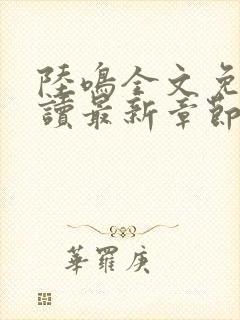 陸鳴全文免
讀最新章節
華羅庚